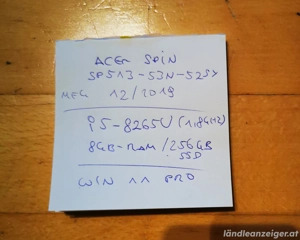 ACER SPIN
SP513-53N-52SY
MFG 12/2019
i5-8265U (1,8GHz)
8GB-RAM/256GB
SSD
WIN 11 PRO
ländleanzeiger.at